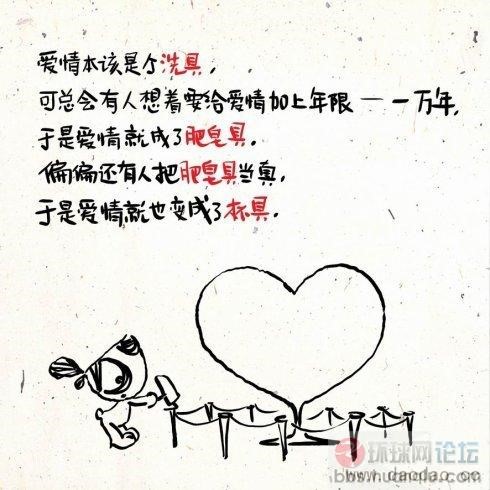 爱情本该是个洗具，
可总会有人想着要给爱情加上年限——一万年，
于是爱情就成了肥皂具。
偏偏还有人把肥皂具当真，
于是爱情就也变成了杯具。
环球网论坛